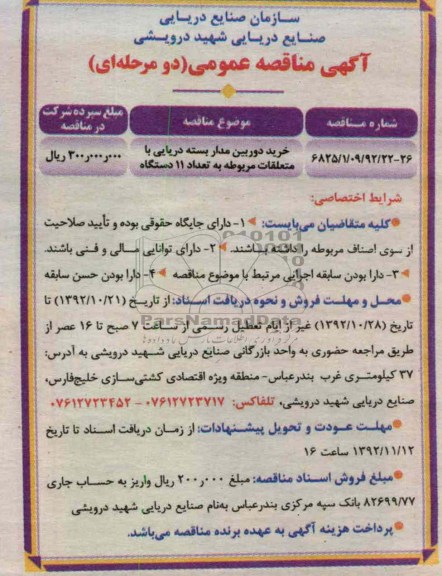 سازمان صنایع دریایی
صنایع دریایی شهید درویشی
آگهی مناقصه عمومی(دو مرحله‌ای)
شماره مناقصه
موضوع مناقصه
مبلغ سپرده شرکت در مناقصه
۶۸۲۵/۱/۰۹/۹۲/۲۲-۲۶
خرید دوربین مدار بسته دریایی با
متعلقات مربوطه به تعداد ۱۱ دستگاه
۳۰۰ر۰۰۰ر۰۰۰ ریال
شرایط اختصاصی:
کلیه متقاضیان می‌بایست: ۱- دارای جایگاه حقوقی بوده و تأیید صلاحیت
از سوی اصناف مربوطه را داشته باشند. ۲- دارای توانایی مالی و فنی باشند.
۳- دارا بودن سابقه اجرایی مرتبط با موضوع مناقصه ۴- دارا بودن حسن سابقه
محل و مهلت فروش و نحوه دریافت اسناد: از تاریخ (۱۳۹۲/۱۰/۲۱) تا
تاریخ (۱۳۹۲/۱۰/۲۸) غیر از ایام تعطیل رسمی از ساعت ۷ صبح تا ۱۶ عصر از
طریق مراجعه حضوری به واحد بازرگانی صنایع دریایی شهید درویشی به آدرس:
۳۷ کیلومتری غرب بندرعباس- منطقه ویژه اقتصادی کشتی‌سازی خلیج‌فارس،
صنایع دریایی شهید درویشی، تلفاکس: ۰۷۶۱۲۷۲۳۷۱۷ - ۰۷۶۱۲۷۲۳۴۵۲
مهلت عودت و تحویل پیشنهادات: از زمان دریافت اسناد تا تاریخ
۱۳۹۲/۱۱/۱۲ ساعت ۱۶
مبلغ فروش اسناد مناقصه: مبلغ ۲۰۰ر۰۰۰ ریال واریز به حساب جاری
۸۲۶۹۹/۷۷ بانک سپه مرکزی بندرعباس به‌نام صنایع دریایی شهید درویشی
پرداخت هزینه آگهی به عهده برنده مناقصه می‌باشد.
ParsNamadData